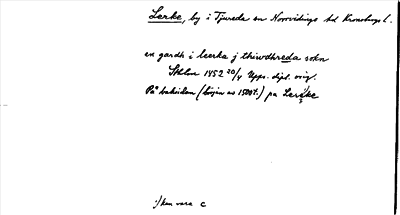 Lerke, by i Tjureda sn Norrvidinge hd Kronobergs l.
en gardh i leerka j thiwdhreda sokn
Sthlm 1452 20/4 Upps. dipl. orig.
På baksidan (början av 1500t.) pa Lerike
1) kan vara c